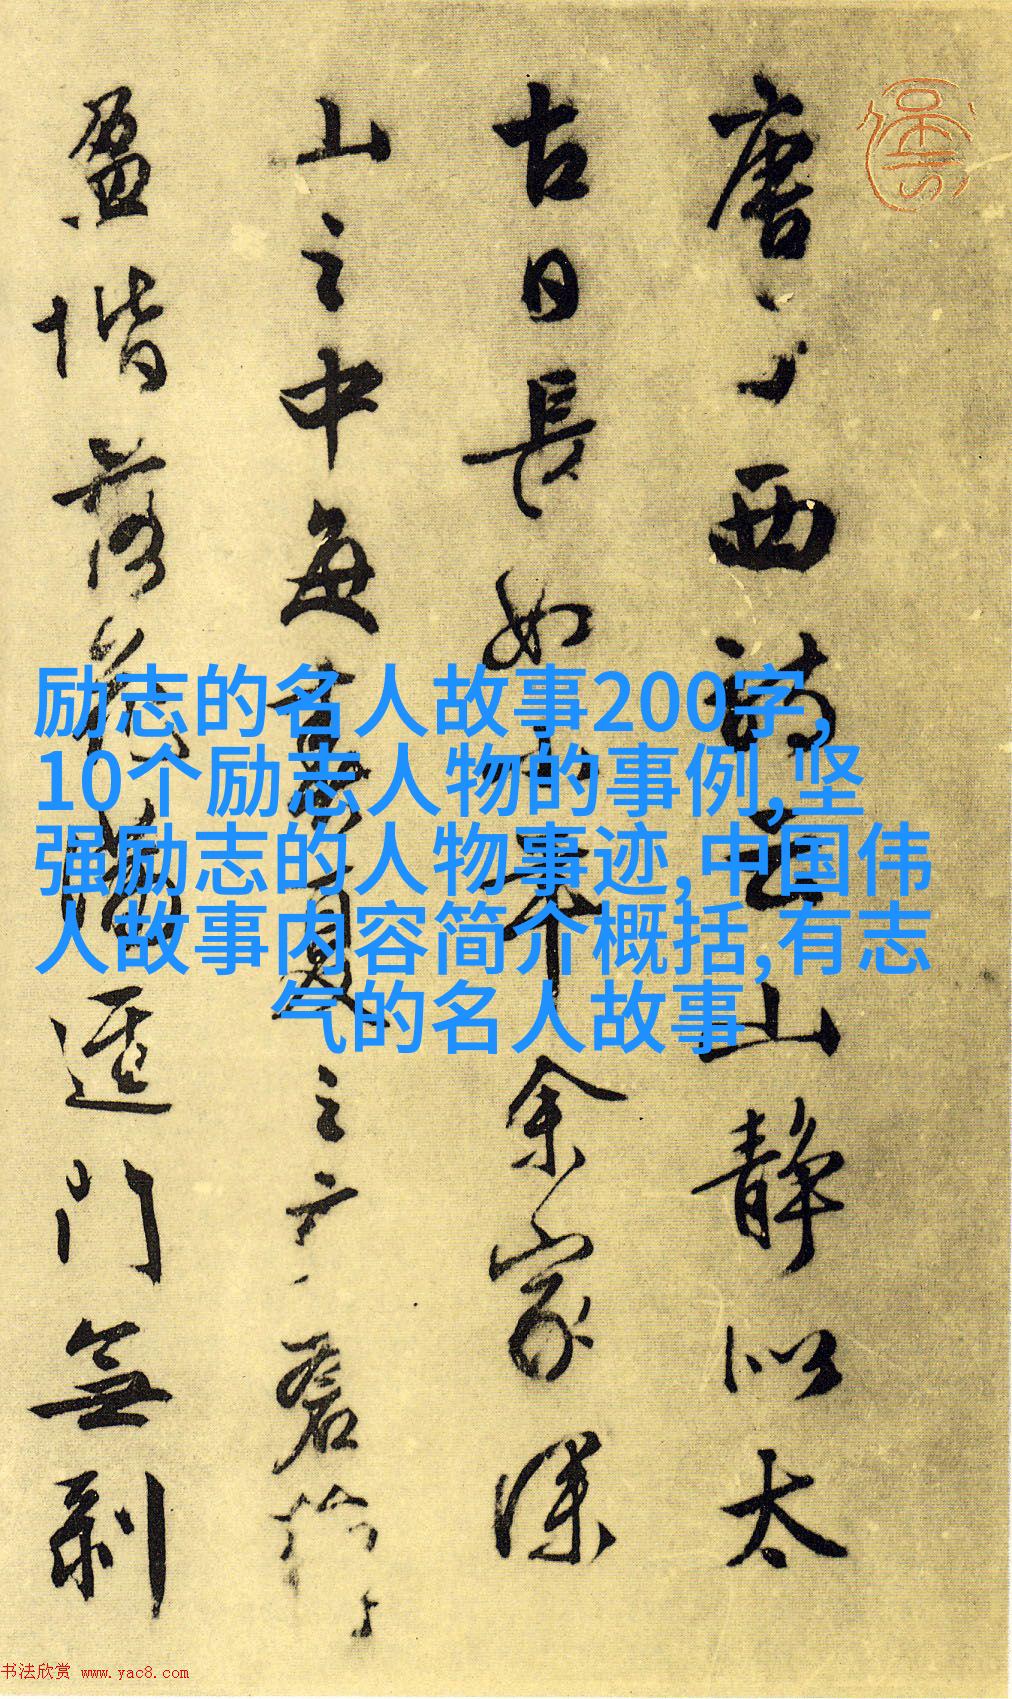 唐子西詩云山静似太
古日長如小年余家深
山之中每春夏之交蒼蘚
盈堦落花滿逕門無剝
励志的名人故事200字,
10个励志人物的事例,坚
强励志的人物事迹,中国伟
人故事内容简介概括,有志
气的名人故事
书法欣赏 www.yac8.com